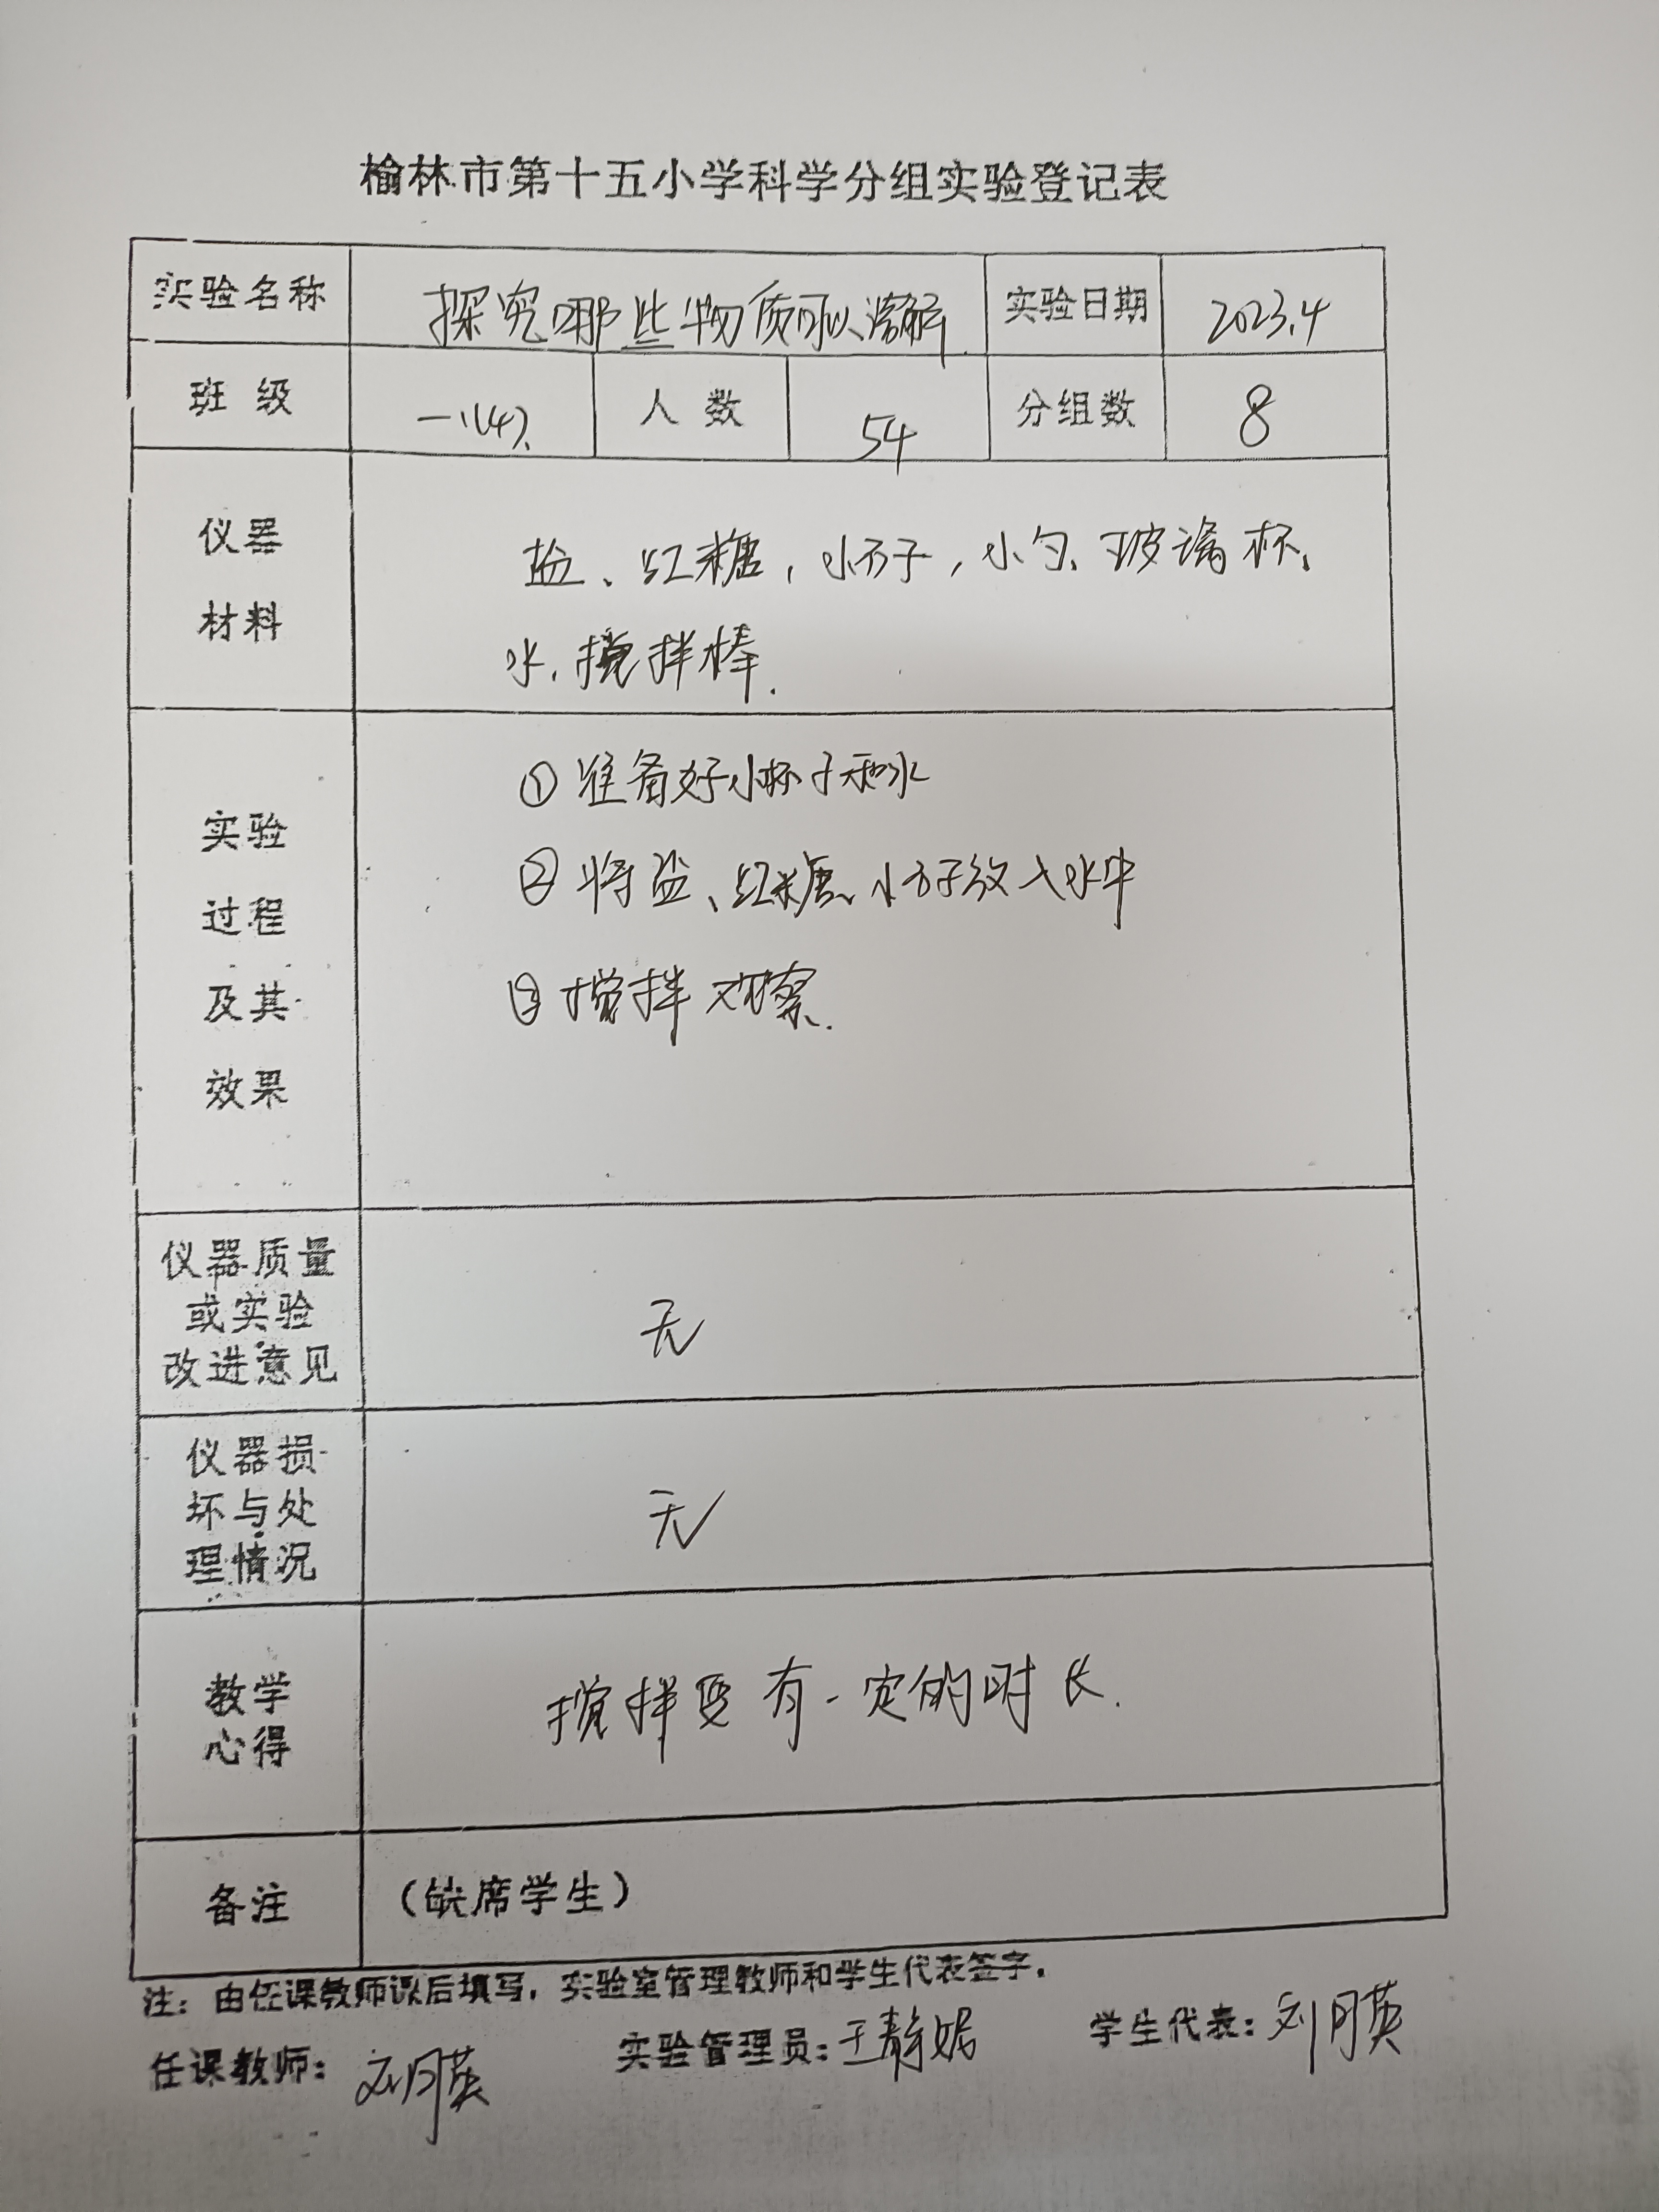 榆林市第十五小学科学分组实验登记表
实验名称 探究哪些物质可以溶解. 实验日期 2023.4
班级 一(4). 人数 54 分组数 8
仪器 盐、红糖,小石子,小勺、玻璃杯、
材料 水、搅拌棒.
① 准备好小杯子和水
实验
② 将盐、红糖、小石子放入水中
过程
及其 ③ 搅拌 观察.
效果
仪器质量
或实验 无
改进意见
仪器损
坏与处 无
理情况
教学 搅拌要有一定的时长.
心得
备注 (缺席学生)
注:由任课教师课后填写,实验室管理教师和学生代表签字.
任课教师:刘月英 实验管理员:王静妮 学生代表:刘月英